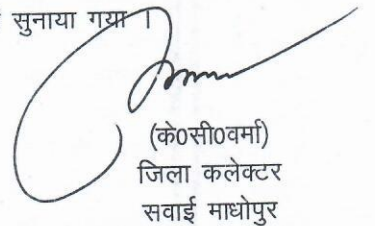 सुनाया गया ।
(के0सी0वर्मा)
जिला कलेक्टर
सवाई माधोपुर